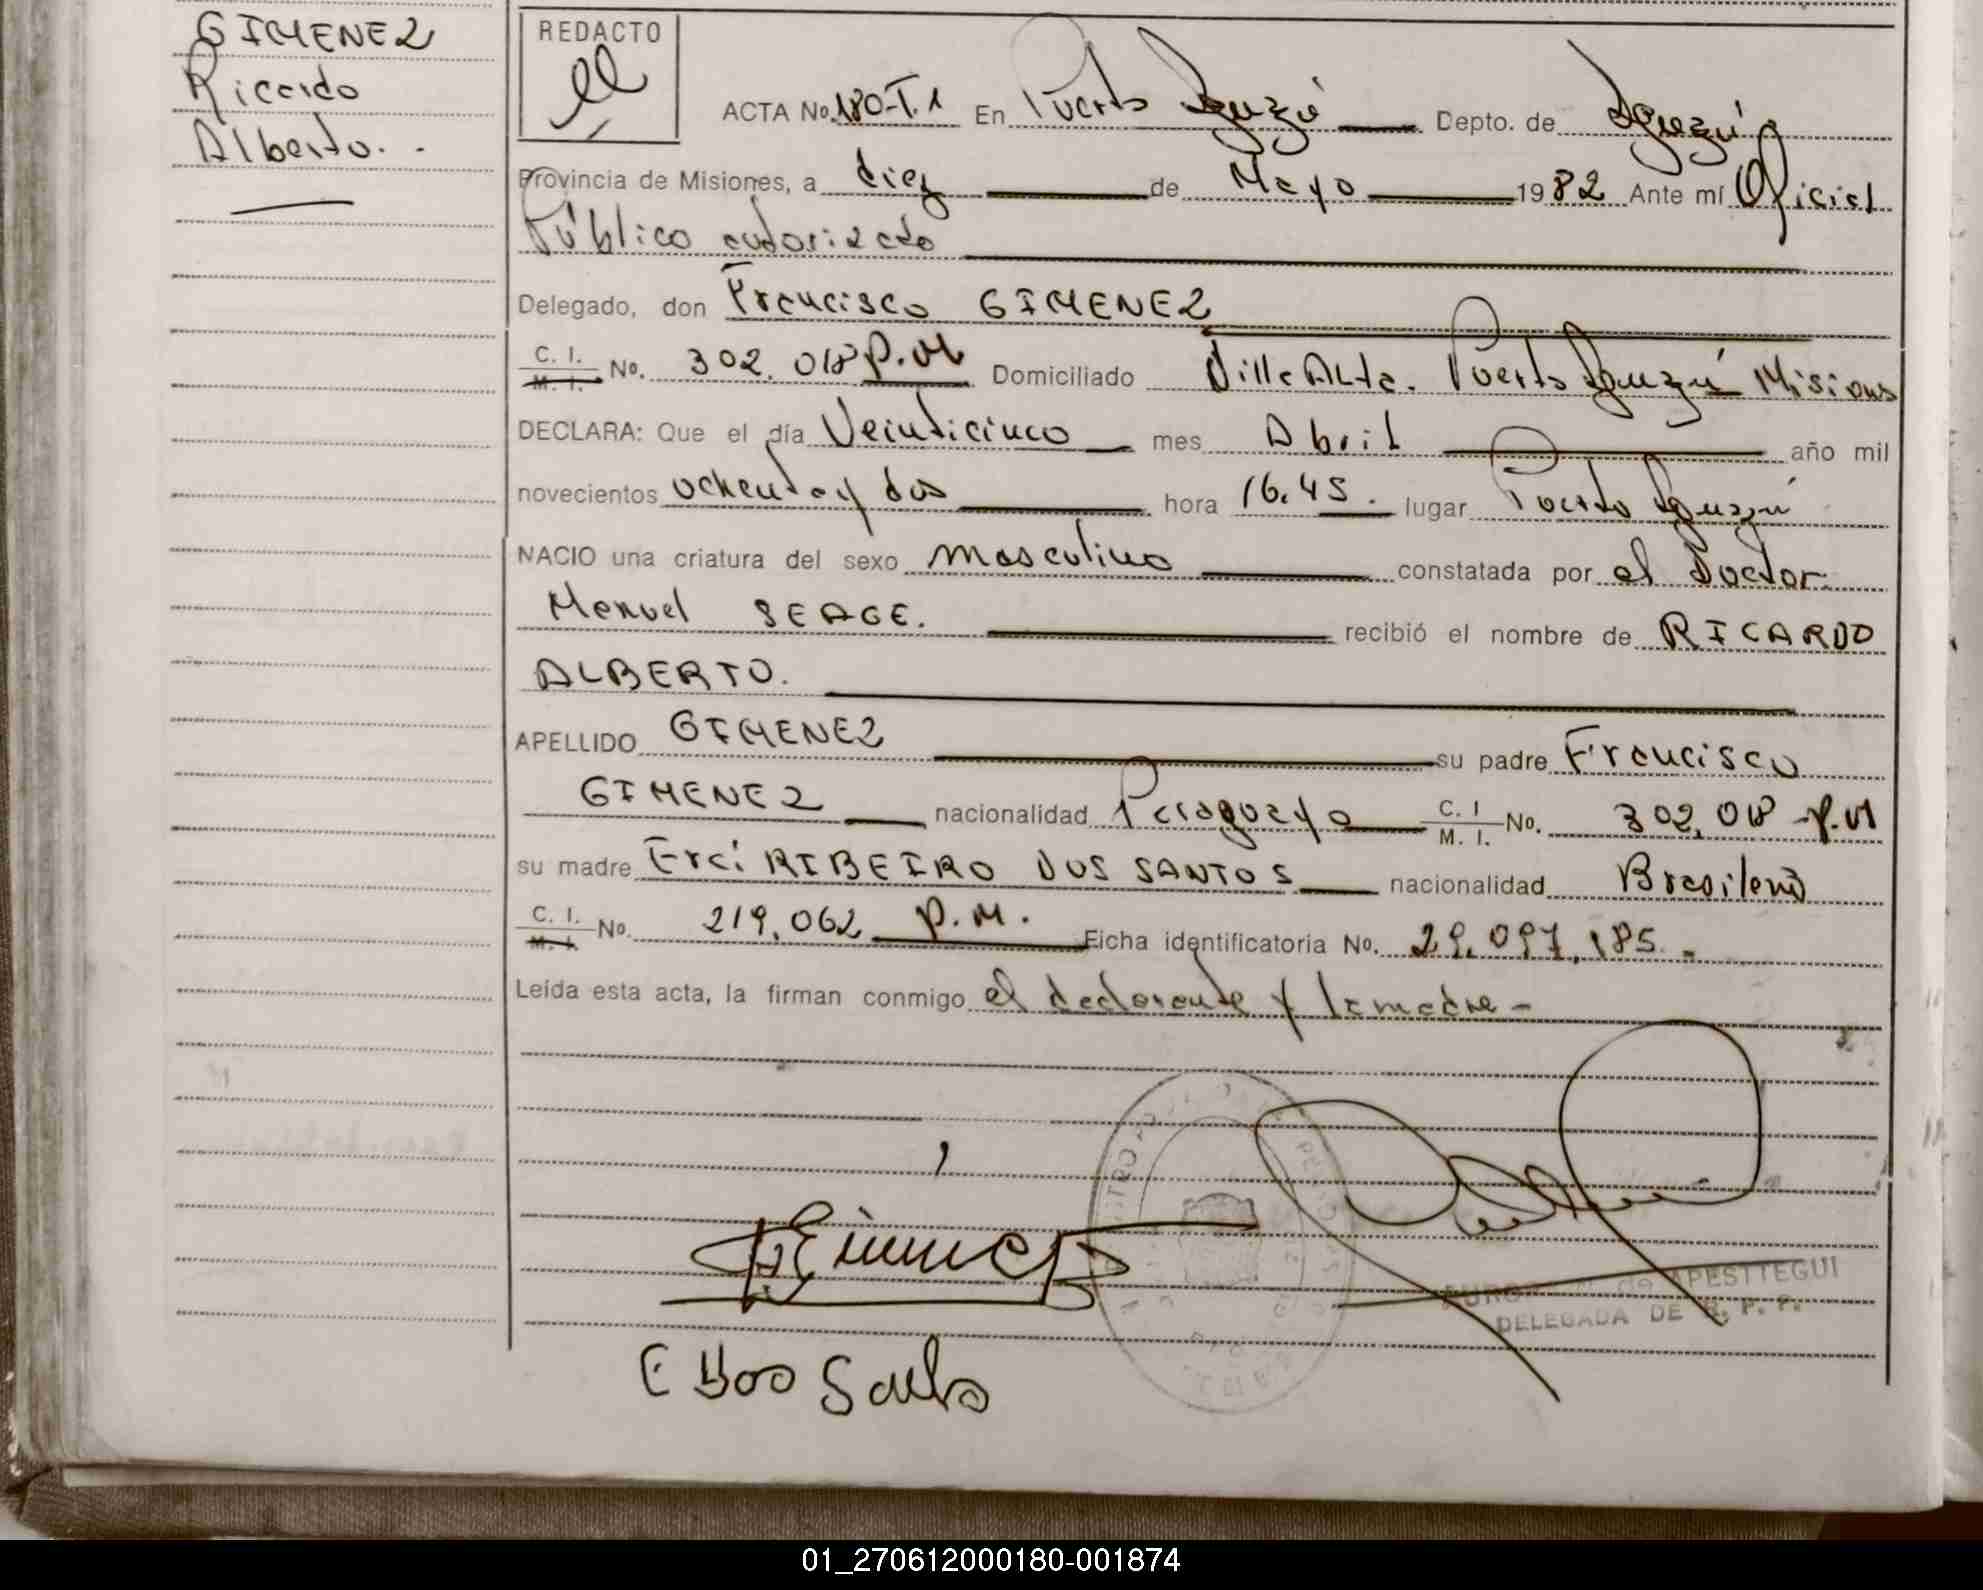 GIMENEZ
Ricardo
Alberto.-
REDACTO
ACTA No. 180-T.1 En Puerto Iguazú Depto. de Iguazú
Provincia de Misiones, a diez de Mayo 1982 Ante mí Oficial
Público autorizado
Delegado, don Francisco GIMENEZ
C. I. M. I. No. 302.018 P.M Domiciliado Villa Alta. Puerto Iguazú Misiones
DECLARA: Que el día Veinticinco mes Abril año mil
novecientos ochenta y dos hora 16.45. lugar Puerto Iguazú
NACIO una criatura del sexo masculino constatada por el Doctor
Manuel SEAGE. recibió el nombre de RICARDO
ALBERTO.
APELLIDO GIMENEZ su padre Francisco
GIMENEZ nacionalidad Paraguaya C. I M. I. No. 302.018 P.M
su madre Erci RIBEIRO DOS SANTOS nacionalidad Brasileña
C. I. M. I. No. 219.062 P.M. Ficha identificatoria No. 29.097.185.-
Leída esta acta, la firman conmigo el declarante y la madre-
Gimenez
E Dos Santos
de APESTTEGUI
DELEGADA DE R. P. P.
01_270612000180-001874